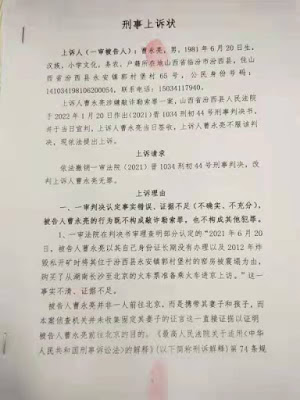 刑事上诉状
上诉人（一审被告人）：曹永亮，男，1981年6月20日生，
汉族，小学文化，务农，户籍所在地山西省临汾市汾西县，住山
西省汾西县永安镇郭村堡村65号，公民身份号码：
141034198106200054，联系电话：15034117940。
上诉人曹永亮涉嫌敲诈勒索罪一案，山西省汾西县人民法院
于2022年1月20日作出(2021)晋1034刑初44号刑事判决书，
并于当日宣判，上诉人曹永亮当日签收，上诉人曹永亮不服该判
决，现依法提出上诉。
上诉请求
依法撤销一审法院（2021）晋1034刑初44号刑事判决，改
判上诉人曹永亮无罪。
上诉理由
一、一审判决认定事实错误、证据不足（不确实、不充分），
被告人曹永亮的行为既不构成敲诈勒索罪，也不构成其他犯罪。
1.一审法院在判决书审理查明部分认定的"2021年6月20
日，被告人曹永亮以其自己身份证长期没有办理以及2012年炸
毁私开矿时将其位于汾西县永安镇郭村堡村的窑房被震塌为由，
购买了从湖南长沙至北京的火车票准备乘火车进京上访。"这一
事实不清、证据不足。
被告人曹永亮并非一人前往北京，而是携带其妻子和孩子，而
本案侦查机关并未收集固定其妻子的证言这一直接证据以证明
被告人曹永亮前往北京的目的。《最高人民法院关于适用〈中华
人民共和国刑事诉讼法〉的解释》（以下简称刑诉解释）第74条规